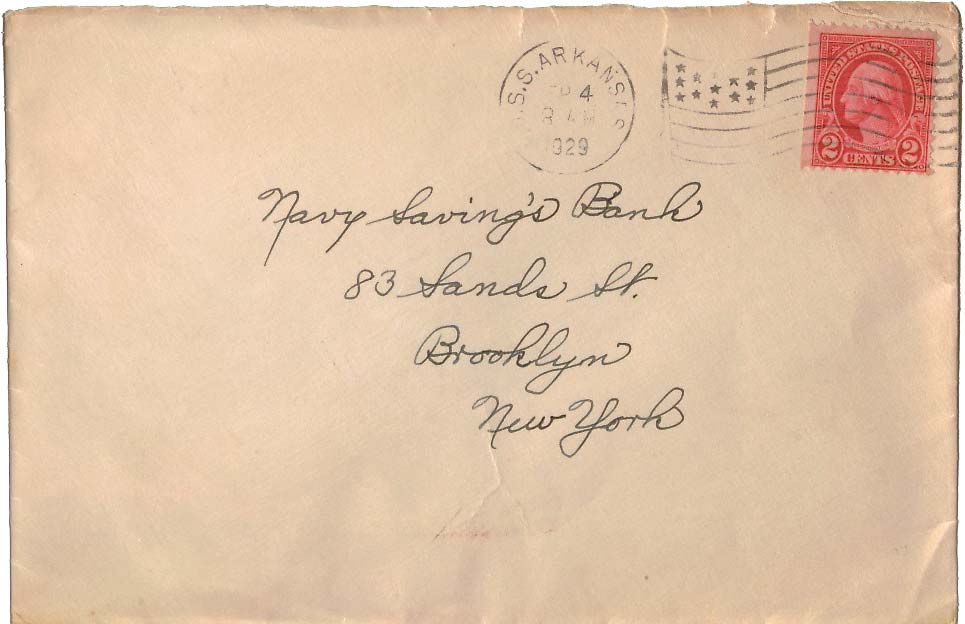 S.S. ARKANSAS
4
8 AM
1929
UNITED STATES POSTAGE
2 CENTS 2
Navy Saving's Bank
83 Sands St.
Brooklyn
New York